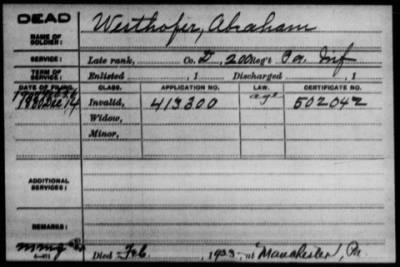 DEAD
NAME OF SOLDIER: Westhofer, Abraham
SERVICE: Late rank, Co. D, 200 Reg't Pa. Inf
TERM OF SERVICE: Enlisted , 1 Discharged , 1
DATE OF FILING. CLASS. APPLICATION NO. LAW. CERTIFICATE NO.
Invalid, 413300 age 502042
Widow,
Minor,
ADDITIONAL SERVICES:
REMARKS:
Died Feb , 1903, at Manchester, Pa.